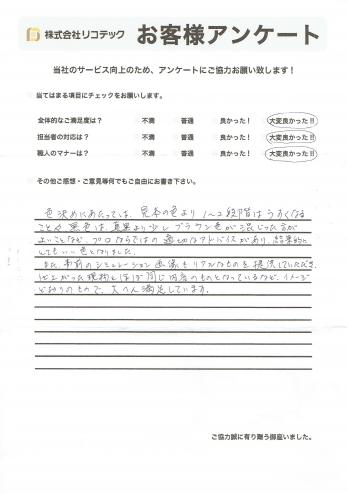 株式会社リコテック お客様アンケート
当社のサービス向上のため、アンケートにご協力お願い致します！
当てはまる項目にチェックをお願いします。
全体的なご満足度は？ 不満 普通 良かった！ 大変良かった!!
担当者の対応は？ 不満 普通 良かった！ 大変良かった!!
職人のマナーは？ 不満 普通 良かった！ 大変良かった!!
その他ご感想・ご意見等何でもご自由にお書き下さい。
色決めにあたっては、見本の色より1〜2段階はうすくなる
ことや黒色は、真黒より少しブラウン色が混じった方が
よいことなど、プロならではの適切なアドバイスがあり、結果的に
とてもいい色となりました。
また、事前のシミュレーション画像もリアルなものを提供していただき、
仕上がった現物とほぼ同じ内容のものとなっているなど、イメージ
どおりのもので、大へん満足しています。
ご協力誠に有り難う御座いました。